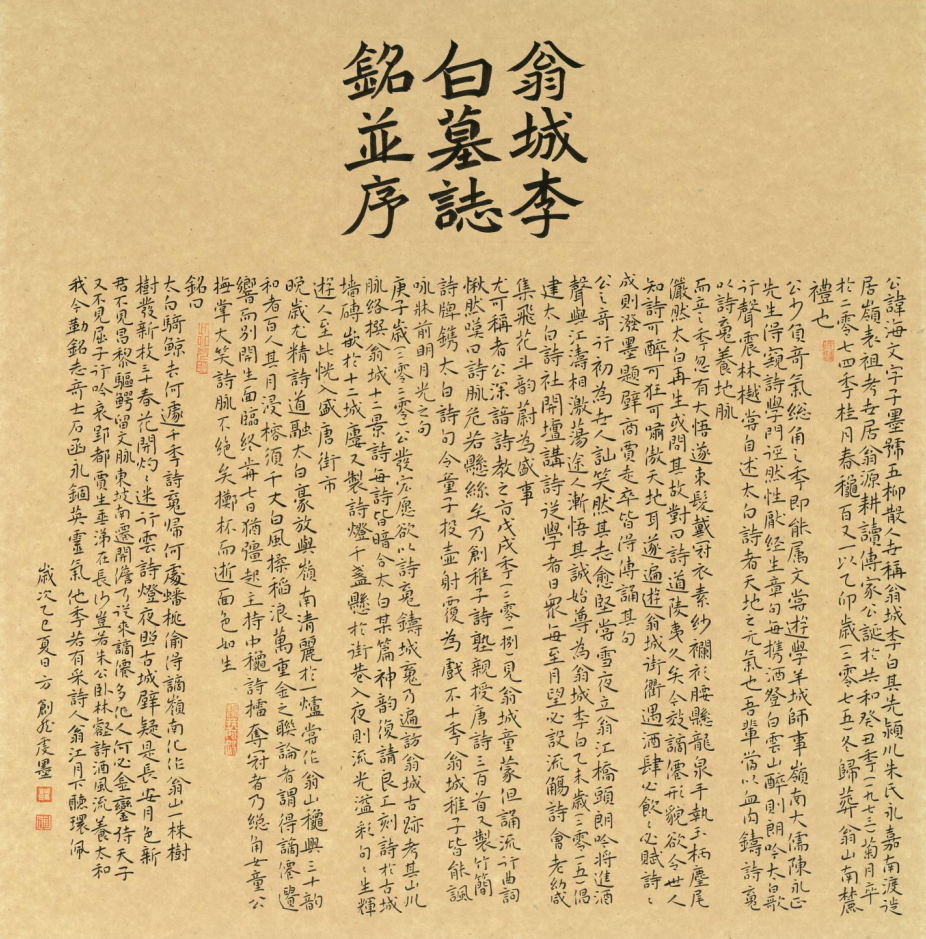 翁城李
白墓誌
銘並序
公諱海文字子墨號五柳散人世稱翁城李白其先潁川朱氏永嘉南渡徙
居嶺表祖考世居翁源耕讀傳家公誕於共和癸丑季一九七三菊月卒
於二零七四季桂月春穐百又一以乙卯歲二零七五冬歸葬翁山南麓
禮也
公少負奇氣總角之季即能属文嘗遊學羊城師事嶺南大儒陳永正
先生得窺詩學門逕然性厭经生章句每携酒登白雲山醉則朗吟太白歌
行聲震林樾常自述太白詩者天地之元氣也吾輩當以血肉鑄詩䰟
以詩䰟養地脈
而立之季忽有大悟遂束髮戴冠衣素紗襕衫腰懸龍泉手執玉柄麈尾
儼然太白再生或問其故對曰詩道陵夷久矣今放謫僊形貌欲令世人
知詩可醉可狂可嘯傲天地耳遂遍遊翁城街衢遇酒肆必飲〻必賦詩〻
成則潑墨題壁商賈走卒皆得傳誦其句
公之奇行初為世人訕笑然其志愈堅嘗雪夜立翁江橋頭朗吟將進酒
聲與江濤相激蕩途人漸悟其誠始尊為翁城李白乙未歲二零一五倡
建太白詩社開壇講詩從學者日衆每至月望必設流觴詩會老幼咸
集飛花斗韵蔚為盛事
尤可稱者公深諳詩教之旨戊戌季二零一捌見翁城童蒙但誦流行曲詞
愀然嘆曰詩脈危若懸絲矣乃創稚子詩塾親授唐詩三百首又製竹簡
詩牌鐫太白詩句令童子投壺射覆為戲不十季翁城稚子皆能諷
咏牀前明月光之句
庚子歲二零二零公發宏愿欲以詩䰟鑄城䰟乃遍訪翁城古跡考其山川
脈络撰翁城十二景詩每詩皆暗合太白某篇神韵復請良工刻詩於古城
墻磚嵌於十二城廔又製詩燈千盏懸於街巷入夜則流光溢彩句〻生輝
遊人至此恍入盛唐街市
晚歲尤精詩道融太白豪放與嶺南清麗於一爐嘗作翁山穐興三十韵
和者百人其月浸榕須千丈白風搡稻浪萬重金之聯論者謂得謫僊遺
響而别開生面臨終前七日猶彊起主持中穐詩擂奪冠者乃總角女童公
撫掌大笑詩脈不绝矣擲杯而逝面色如生
銘曰
太白騎鲸去何遽千季詩䰟歸何處蟠桃偷得謫嶺南化作翁山一株樹
樹發新枝三十春花開灼〻迷行雲詩燈夜照古城壁疑是長安月色新
君不見昌黎驅鰐留文脈東坡南遷開儋乃從來謫僊多他人何必金鑾侍天子
又不見屈子行吟哀郢都賈生垂涕在長沙豈若朱公卧林壑詩酒風流養太和
我今勒銘志奇士石函永錮英靈氣他季若有采詩人翁江月下聽環佩
歲次乙巳夏日方創飛虔墨